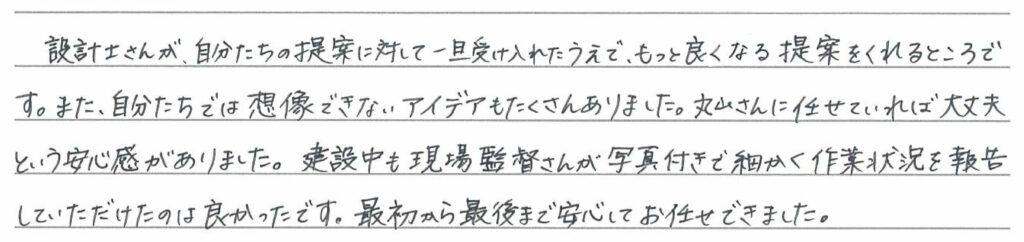 設計士さんが、自分たちの提案に対して一旦受け入れたうえで、もっと良くなる提案をくれるところで
す。また、自分たちでは想像できないアイデアもたくさんありました。丸山さんに任せていれば大丈夫
という安心感がありました。建設中も現場監督さんが写真付きで細かく作業状況を報告
していただけたのは良かったです。最初から最後まで安心してお任せできました。